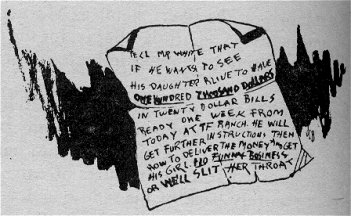 TELL MR WHITE THAT
IF HE WANTS TO SEE
HIS DAUGHTER ALIVE TO HAVE
ONE HUNDRED THOUSAND DOLLARS
IN TWENTY DOLLAR BILLS
READY ONE WEEK FROM
TODAY AT TF RANCH. HE WILL
GET FURTHER INSTRUCTIONS THEN
HOW TO DELIVER THE MONEY AND GET
HIS GIRL. NO FUNNY BUSINESS
OR WE'LL SLIT HER THROAT